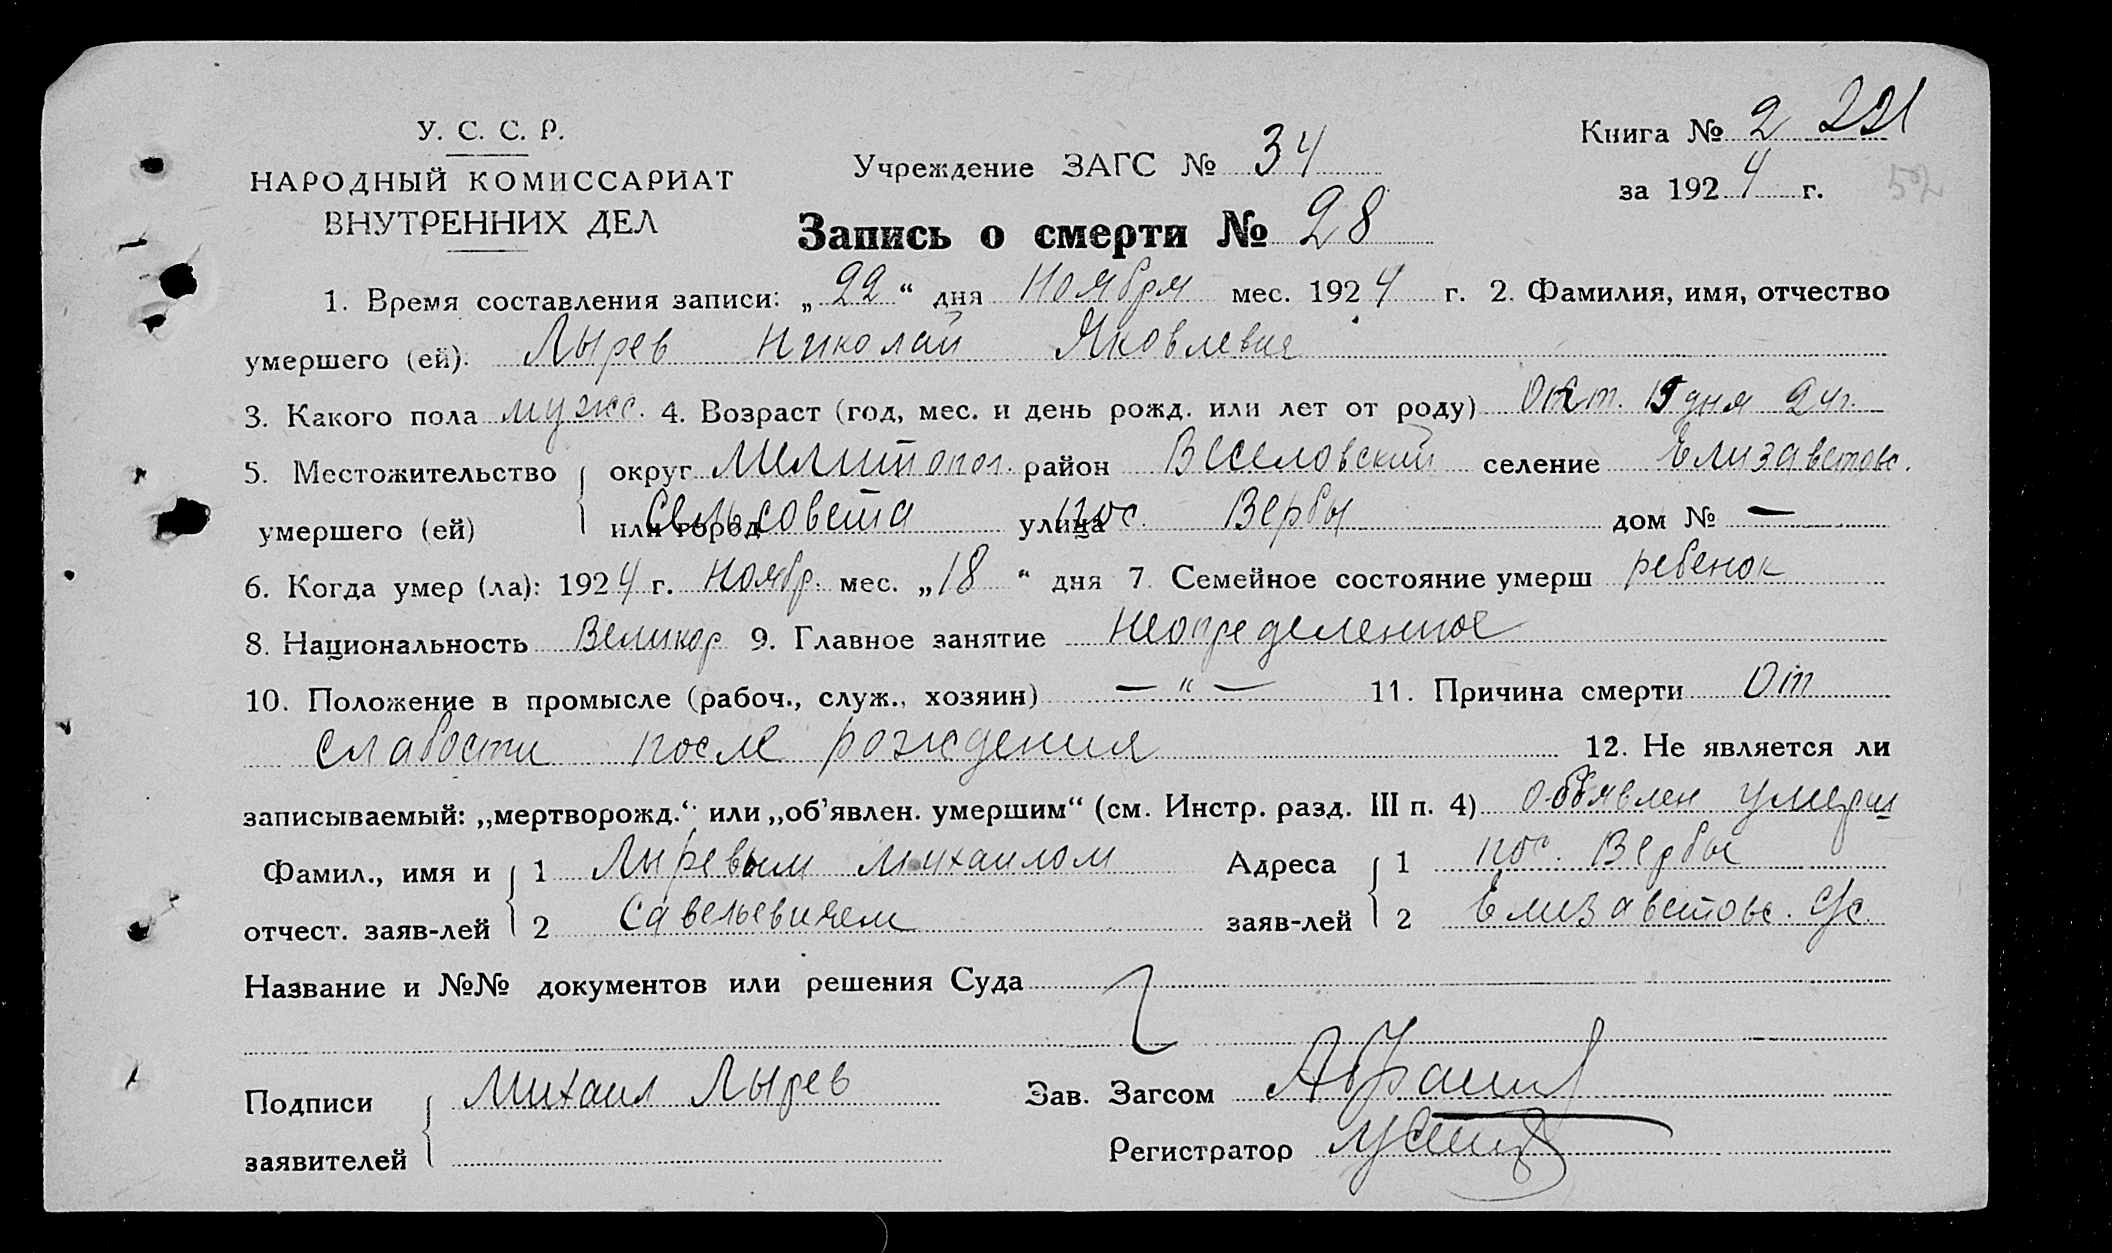 У. С. С. Р.
НАРОДНЫЙ КОМИССАРИАТ
ВНУТРЕННИХ ДЕЛ
Учреждение ЗАГС № 34
Книга № 2 221
за 1924 г. 52
Запись о смерти № 28
1. Время составления записи: „22“ дня Ноября мес. 1924 г. 2. Фамилия, имя, отчество
умершего (ей). Лырев Николай Яковлевич
3. Какого пола мужс. 4. Возраст (год, мес. и день рожд. или лет от роду) Окт. 15 дня 24 г.
5. Местожительство округ Мелитопол. район Веселовский селение Елизаветовс.
умершего (ей) или город Сельсовета улица пос. Вербы дом № —
6. Когда умер (ла): 1924 г. Ноябр. мес. „18“ дня 7. Семейное состояние умерш ребенок
8. Национальность Великор 9. Главное занятие неопределенное
10. Положение в промысле (рабоч., служ., хозяин) — „ — 11. Причина смерти От
слабости после рождения 12. Не является ли
записываемый: „мертворожд.“ или „об’явлен. умершим“ (см. Инстр. разд. III п. 4) объявлен умерш
Фамил., имя и 1 Лыревым Михаилом Адреса 1 пос. Вербы
отчест. заяв-лей 2 Савельевичем заяв-лей 2 Елизаветовс. с/с.
Название и №№ документов или решения Суда
Подписи Михаил Лырев Зав. Загсом
заявителей Регистратор